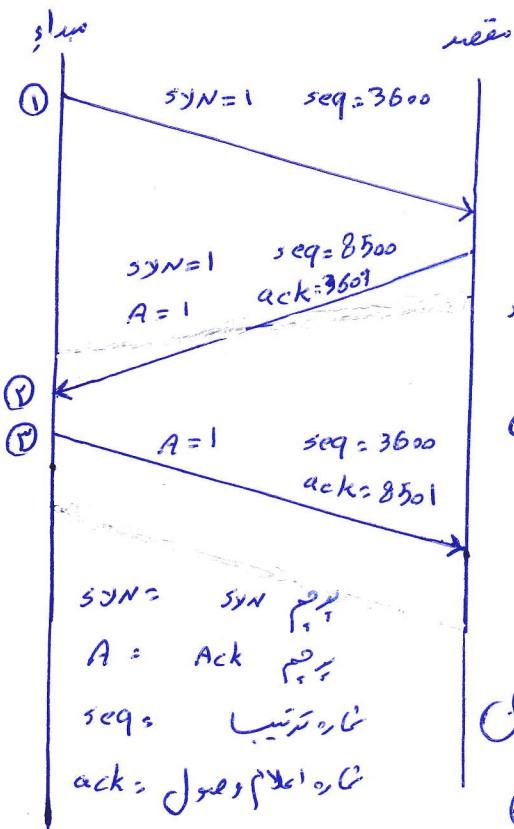 مبداء
مقصد
① SYN=1 seq=3600
SYN=1 seq=8500
A=1 ack=3601
②
③ A=1 seq=3600
ack=8501
SYN= SYN پرچم
A = Ack پرچم
seq= شماره ترتیب
ack= شماره اعلام وصول